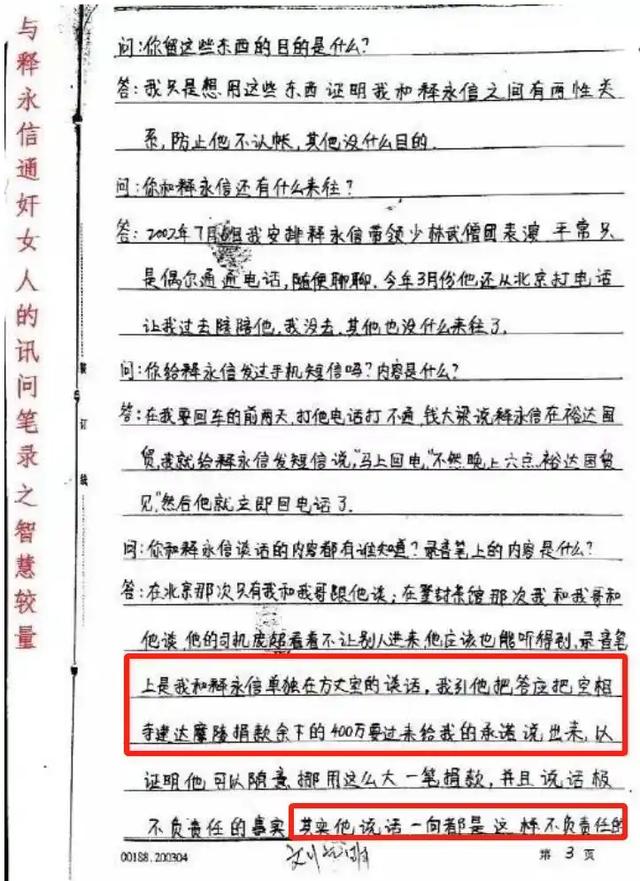 与释永信通奸女人的讯问笔录之智慧较量
问:你留这些东西的目的是什么?
答:我只是想用这些东西证明我和释永信之间有两性关
系,防止他不认帐,其他没什么目的.
问:你和释永信还有什么来往?
答:2002年7月 我安排释永信带领少林武僧团表演 平常只
是偶尔通通电话,随便聊聊.今年3月份他还从北京打电话
让我过去陪陪他,我没去,其他也没什么来往了.
问:你给释永信发过手机短信吗?内容是什么?
答:在我要回车的前两天,打他电话打不通,钱大梁说释永信在裕达国
贸,我就给释永信发短信说,"马上回电,"不然,晚上六点,裕达国贸
见,"然后他就立即回电话了.
问:你和释永信谈话的内容都有谁知道?录音笔上的内容是什么?
答:在北京那次只有我和我哥跟他谈;在登封宾馆那次我和我哥和
他谈,他的司机 看着不让别人进来,他应该也能听得到,录音笔
上是我和释永信单独在方丈室的谈话,我引他把答应把空相
寺建达摩陵捐款余下的400万要过来给我的承诺说出来,以
证明他可以随意挪用这么大一笔捐款,并且说话极
不负责任的事实.其实他说话一向都是这样不负责任的
装
订
线
00188.200304
第 3 页